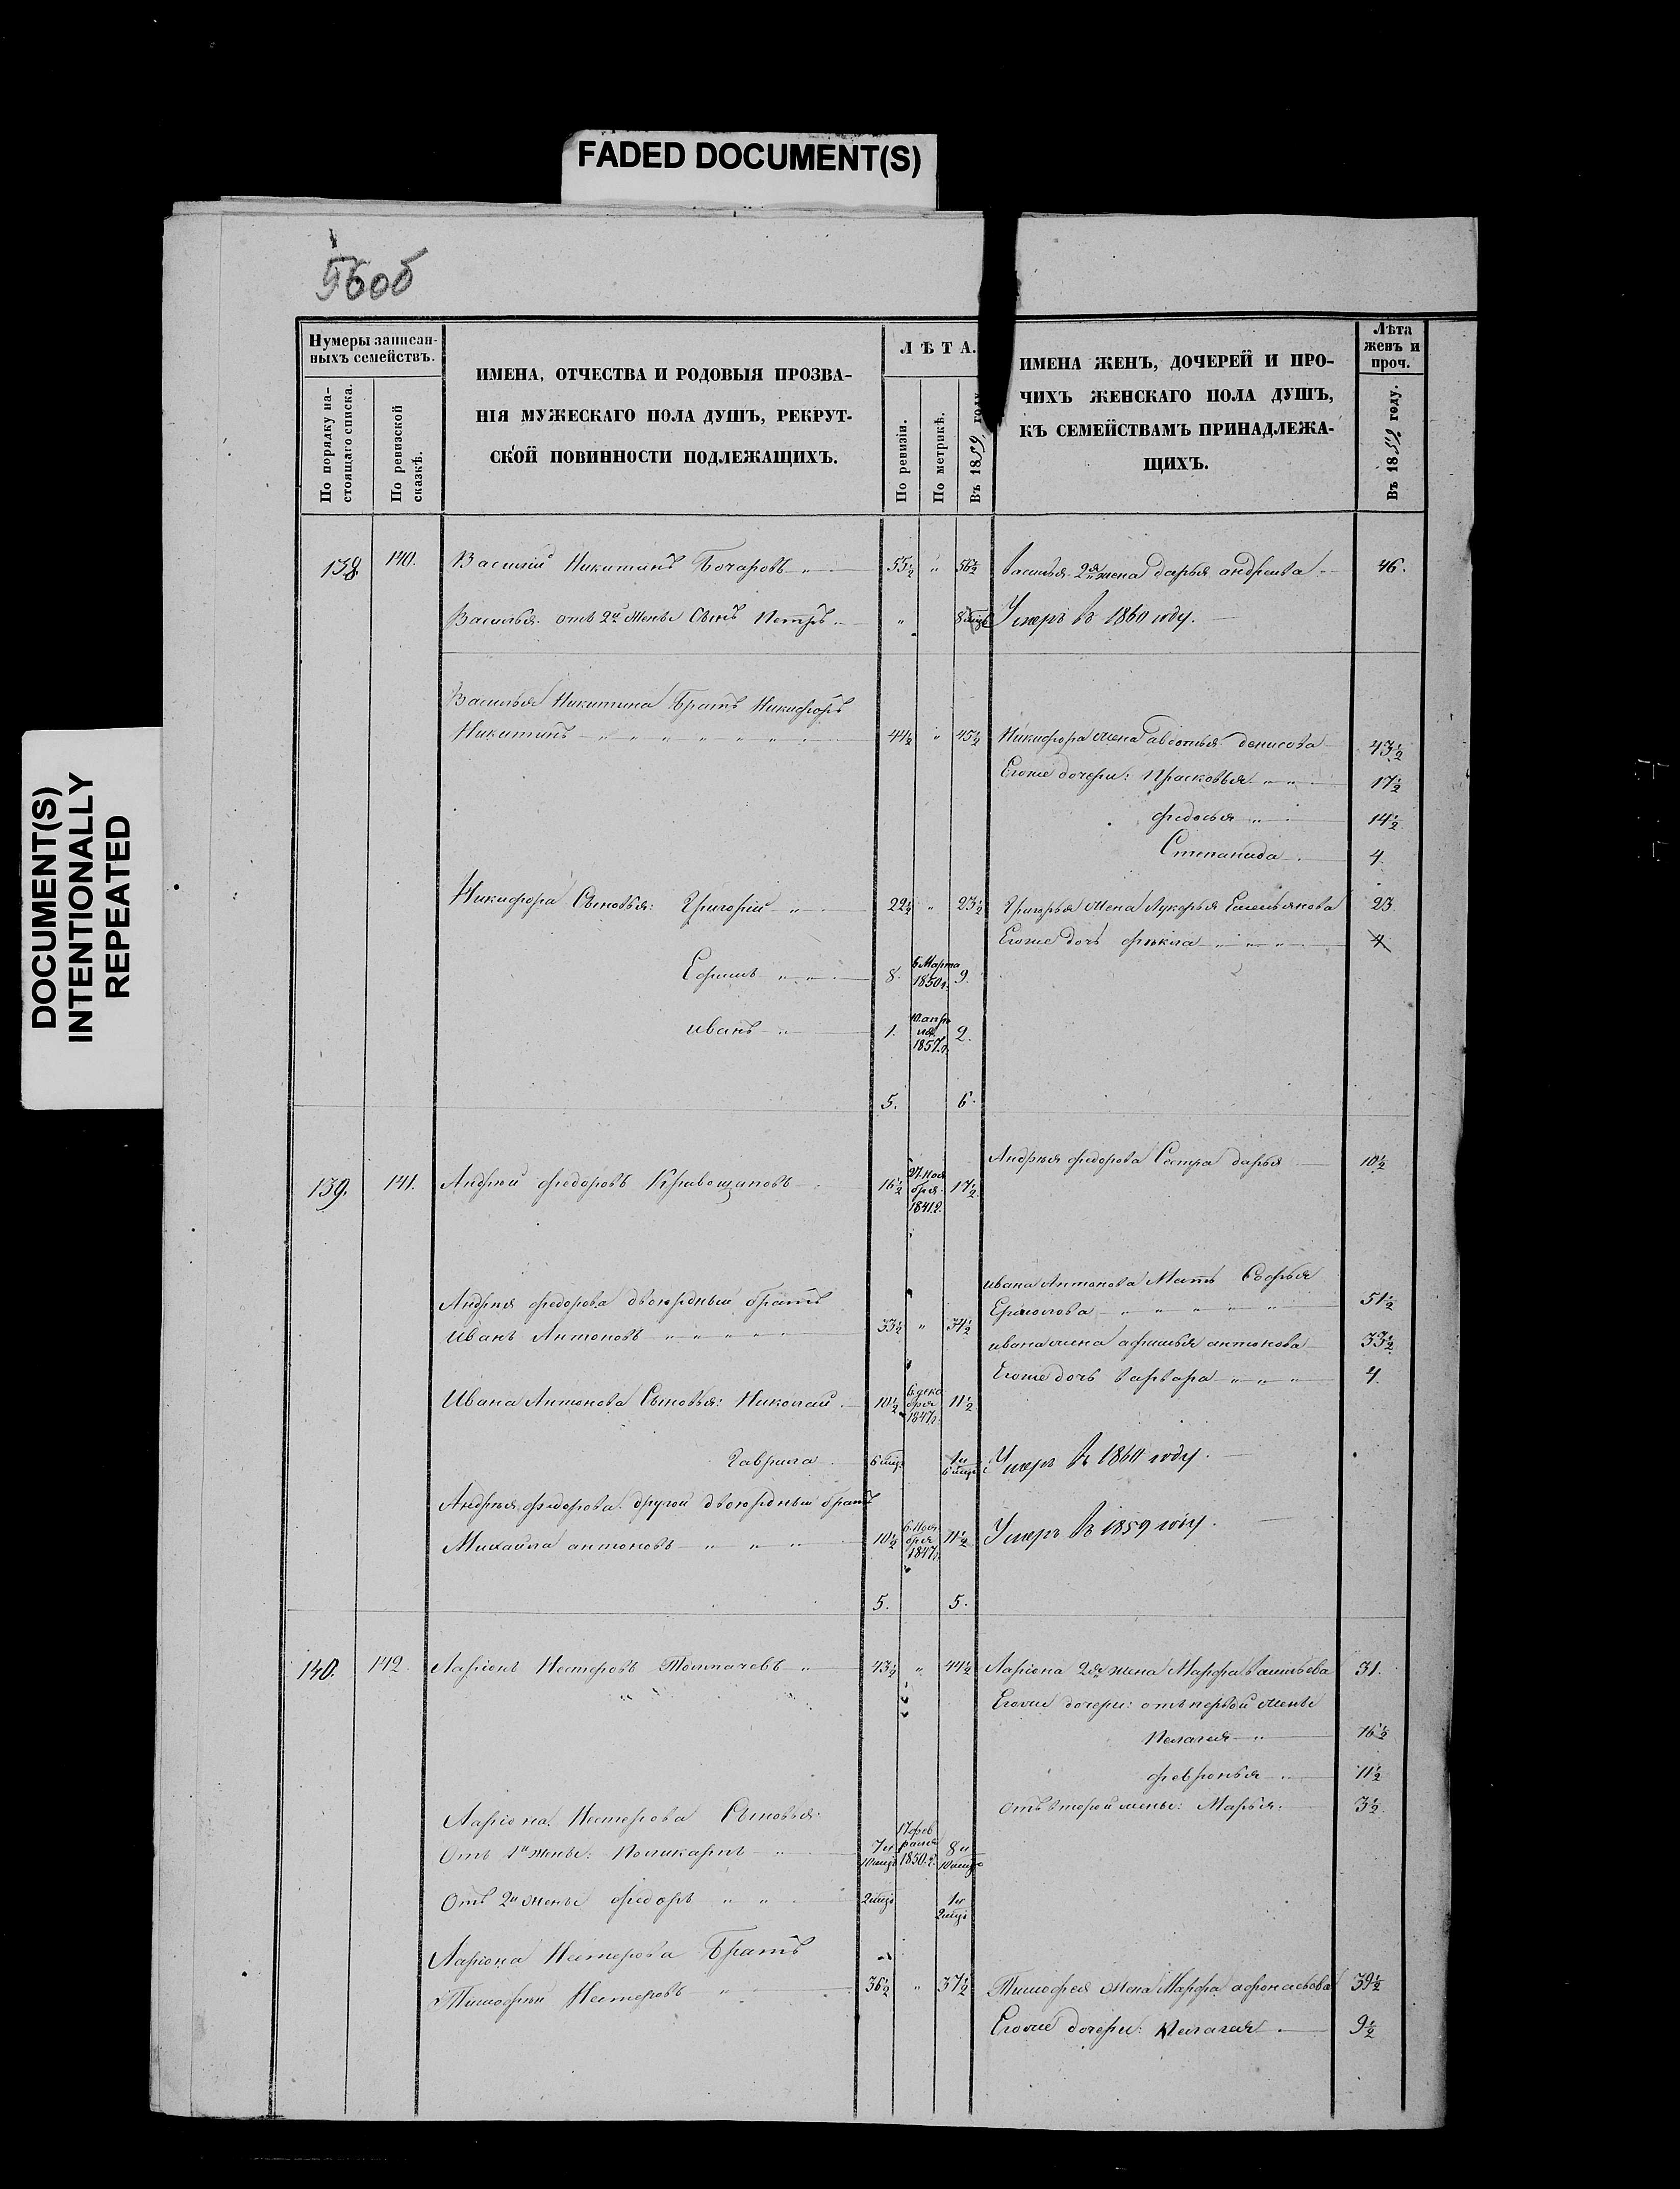 FADED DOCUMENT(S)
DOCUMENT(S)
INTENTIONALLY
REPEATED
56об
Нумеры записан-
ныхъ семействъ.
По порядку на-
стоящаго списка.
По ревизской
сказкѣ.
ИМЕНА, ОТЧЕСТВА И РОДОВЫЯ ПРОЗВА-
НІЯ МУЖЕСКАГО ПОЛА ДУШЪ, РЕКРУТ-
СКОЙ ПОВИННОСТИ ПОДЛЕЖАЩИХЪ.
ЛѢТА.
По ревизіи.
По метрикѣ.
Въ 1859 году
ИМЕНА ЖЕНЪ, ДОЧЕРЕЙ И ПРО-
ЧИХЪ ЖЕНСКАГО ПОЛА ДУШЪ,
КЪ СЕМЕЙСТВАМЪ ПРИНАДЛЕЖА-
ЩИХЪ.
Лѣта
женъ и
проч.
Въ 1859 году.
138. 140. Василій Никитинъ Бочаровъ 55½ " 56½ Василья 2я жена дарья андреева 46.
Василья отъ 2й Жены Сынъ Петръ " 8 мцъ Умеръ въ 1860 году.
Василья Никитина Братъ Никифоръ
Никитинъ 44½ " 45½ Никифора жена авдотья денисова 43½
Егоже дочери: Прасковья 17½
федосья 14½
Степанида 4.
Никифора Сыновья: Григорій 22½ " 23½ Григорья жена Лукерья Емельянова 23
Егоже дочь фекла 4
Ефимъ 8. 6 Марта 1850 г. 9.
иванъ 1. 10. апреля 1857. г. 2.
5. 6.
Андрея федорова Сестра дарья 10½
139. 141. Андрей федоровъ Кривощаповъ 16½ 27. ноября 1841. г. 17½
ивана Антонова Мать Софья
Андрея федорова двоюрдный братъ
Ермолова 51½
Иванъ Антоновъ 33½ " 34½
ивана жена афимья антонова 33½
Егоже дочь варвара 4.
Ивана Антонова Сыновья: Николай 10½ 6 декабря 1847 г. 11½
Гаврила 6 мцъ 1 и 6 мцъ Умеръ въ 1860 году.
Андрея федорова другой двоюрдный братъ
Михайла антоновъ 10½ 6. Ноября 1847 г. 11½ Умеръ въ 1859 году.
5. 5.
140. 142. Ларіонъ Нестеровъ Толмачевъ 43½ " 44½ Ларіона 2я жена Марфа васильева 31.
Егоже дочери: отъ первой жены
Пелагея 16½
февронья 11½
Отъ второй жены: Марья: 3½
Ларіона Нестерова Сыновья:
Отъ 1й жены: Поликарпъ 7 и 10 мцъ 17 февраля 1850. г. 8 и 10 мцъ
Отъ 2й жены федоръ 2 мцъ 1 и 2 мцъ
Ларіона Нестерова Братъ
Тимофей Нестеровъ 36½ " 37½ Тимофея жена Марфа афонасьева 39½
Егоже дочери: Пелагея 9½